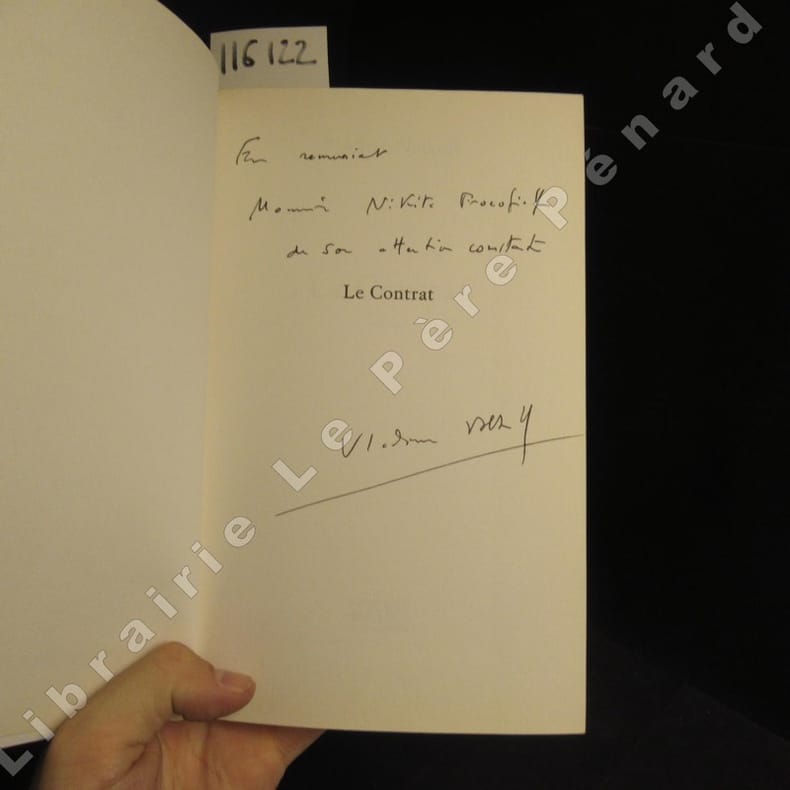 116122
En remerciant
Monsieur Nikita Procofieff
de son attention constante
Le Contrat
Vladimir Volkoff
Librairie Le Père Pénard